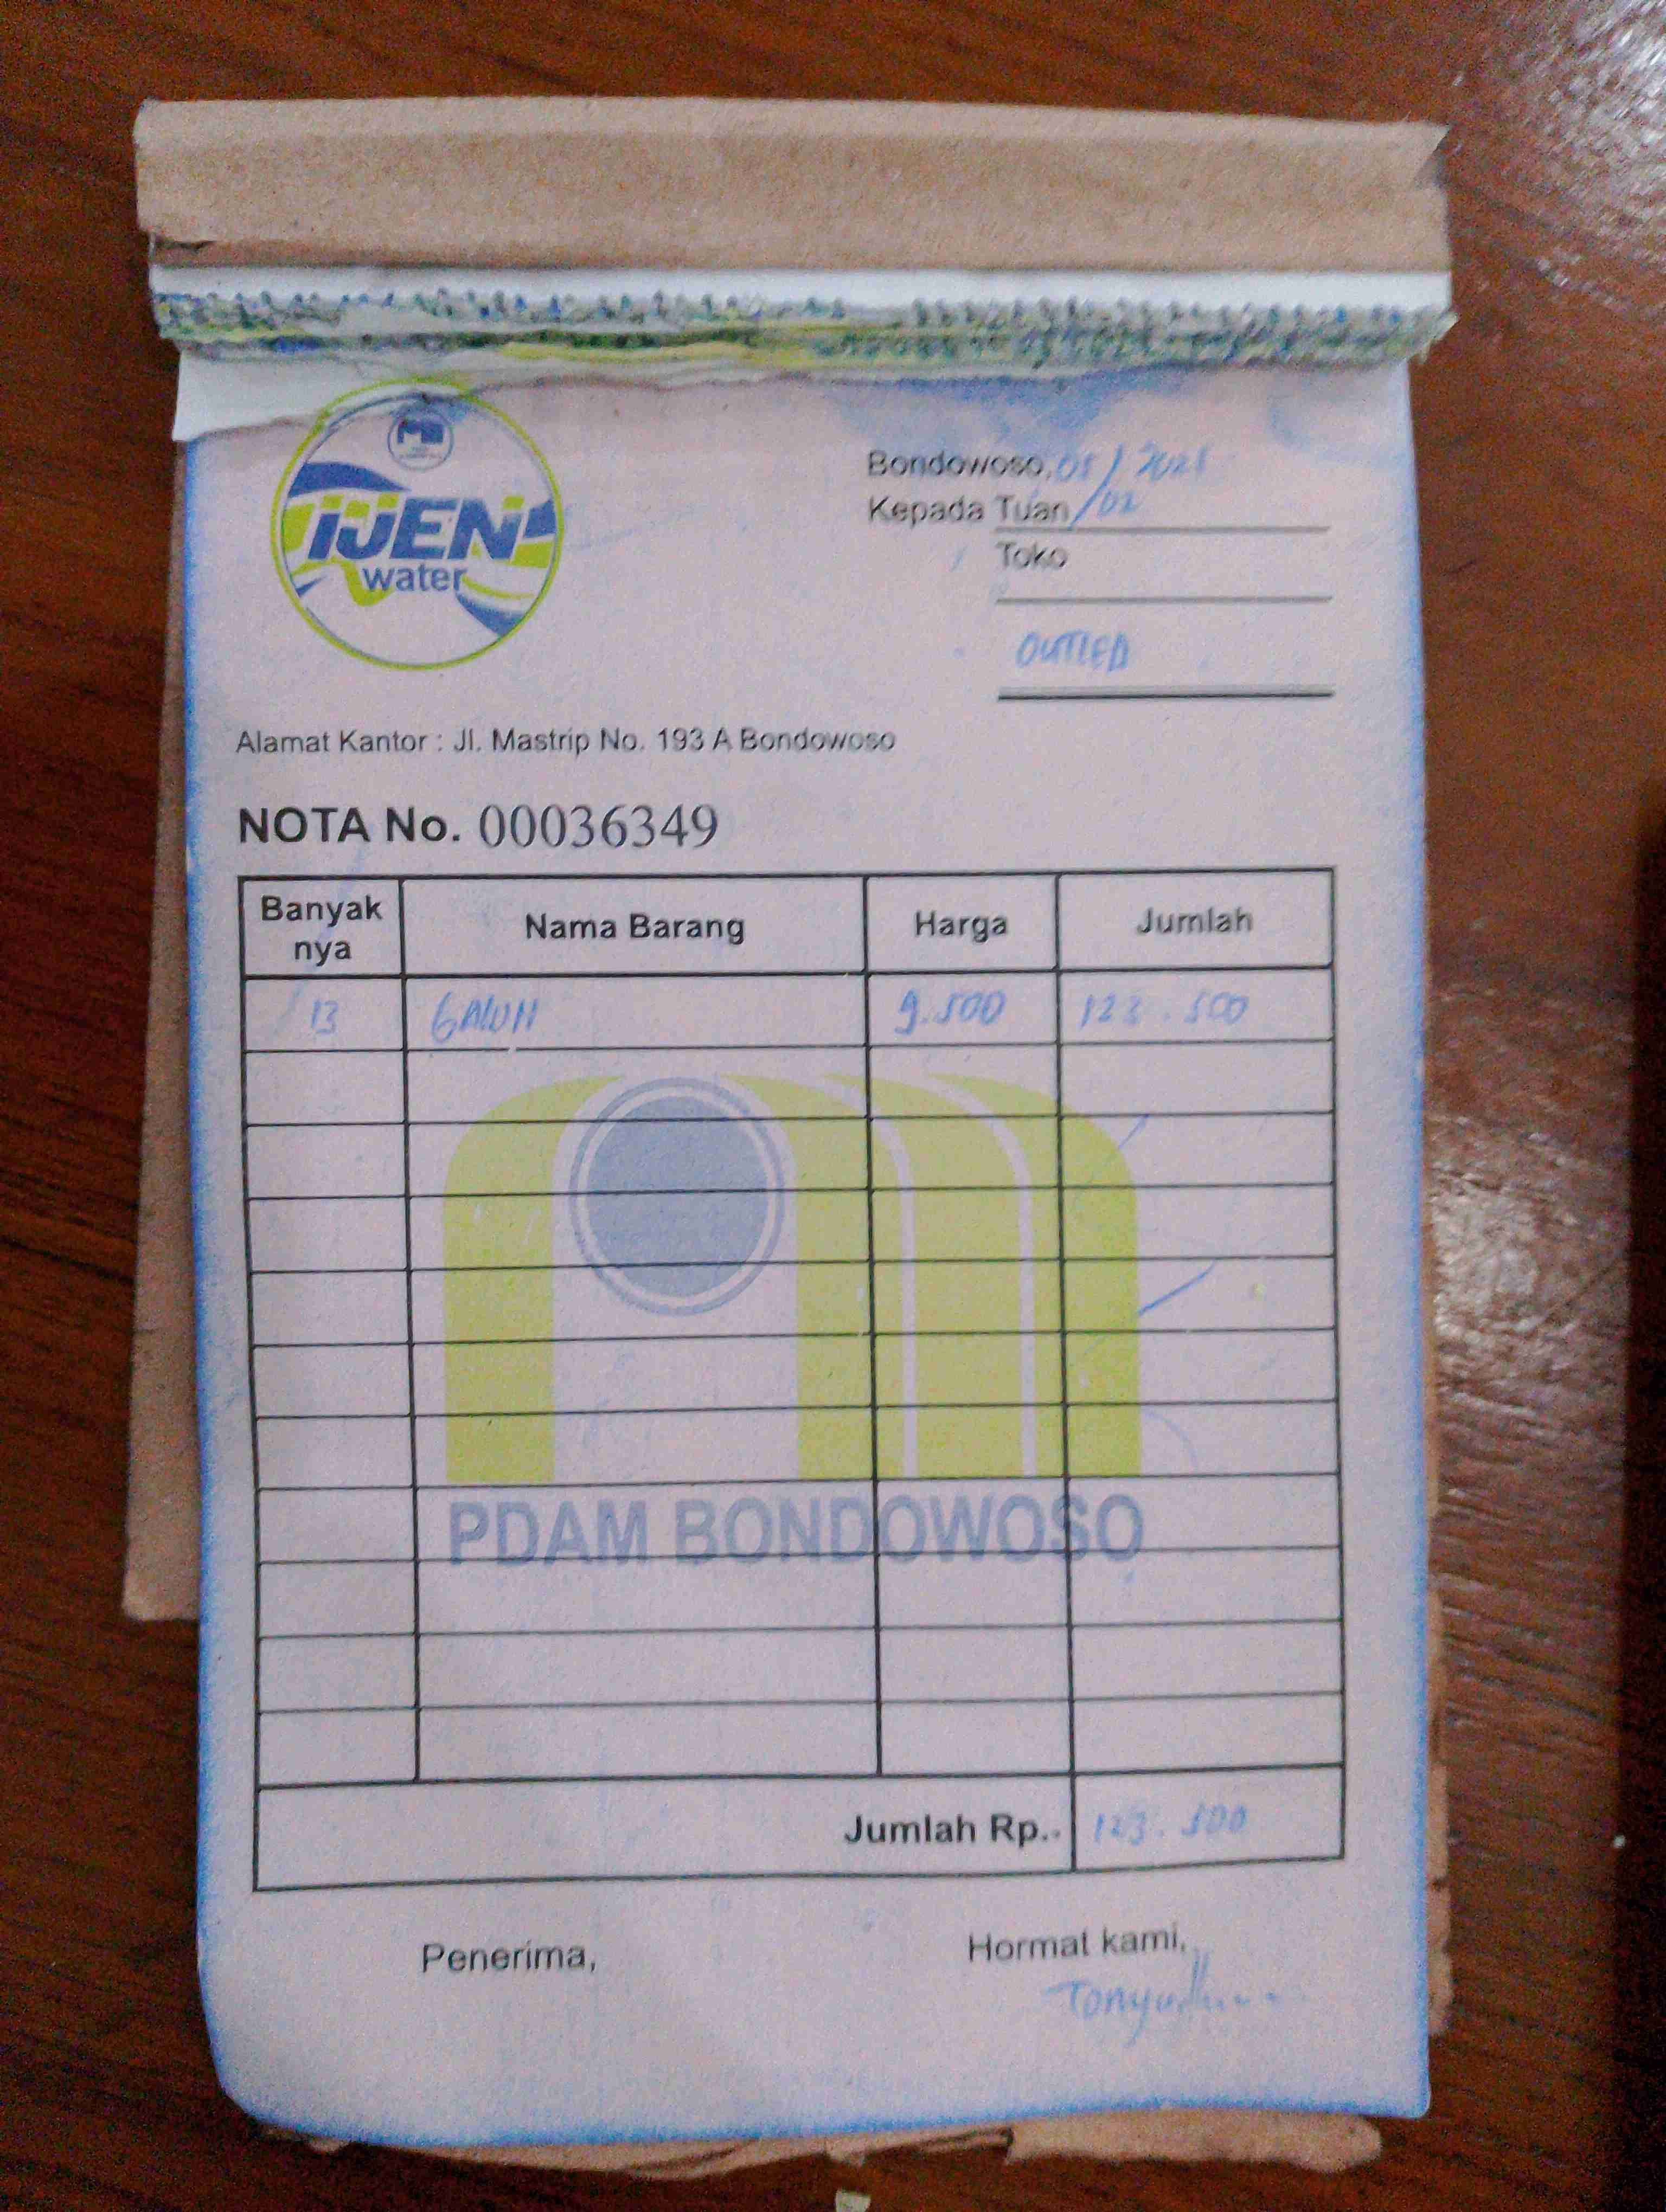 IJEN
water
Bondowoso, 05/02/2025
Kepada Tuan
Toko
OUTLED
Alamat Kantor : Jl. Mastrip No. 193 A Bondowoso
NOTA No. 00036349
Banyak nya Nama Barang Harga Jumlah
13 GALON 9.500 123.500
PDAM BONDOWOSO
Jumlah Rp.. 123.500
Penerima, Hormat kami,